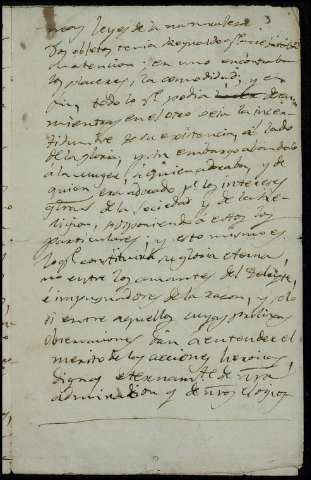 3
leyes de la naturaleza
Dos objetos tenia Reynaldo q.e
la atencion: en uno encontraba
los placeres, la comodidad, y en
fin, todo lo q.e podia
mientras en el otro veia la incer-
tidumbre de su existencia, al lado
de la gloria, y sin embargo abandonó
á la muger, á quien adoraba, y de
quien era adorado p.r los intereses
de la Sociedad y de la Re-
ligion, posponiendo á estos los
particulares; y esto mismo es
lo q.e constituirá su gloria eterna,
no entre los amantes del Deleyte,
é impugnadores de la razon, y si
entre aquellos cuyas prolixas
observaciones dan á entender el
merito de las acciones heroicas
dignas eternam.te de ntra
admiracion y de ntros elogios